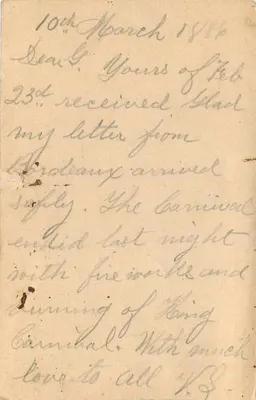 10th March 1886
Dear G. Yours of Feb
23d received Glad
my letter from
Bordeaux arrived
safly. The Carnival
endid last night
with fire works and
burning of King
Carnival. With much
love to all V.S.